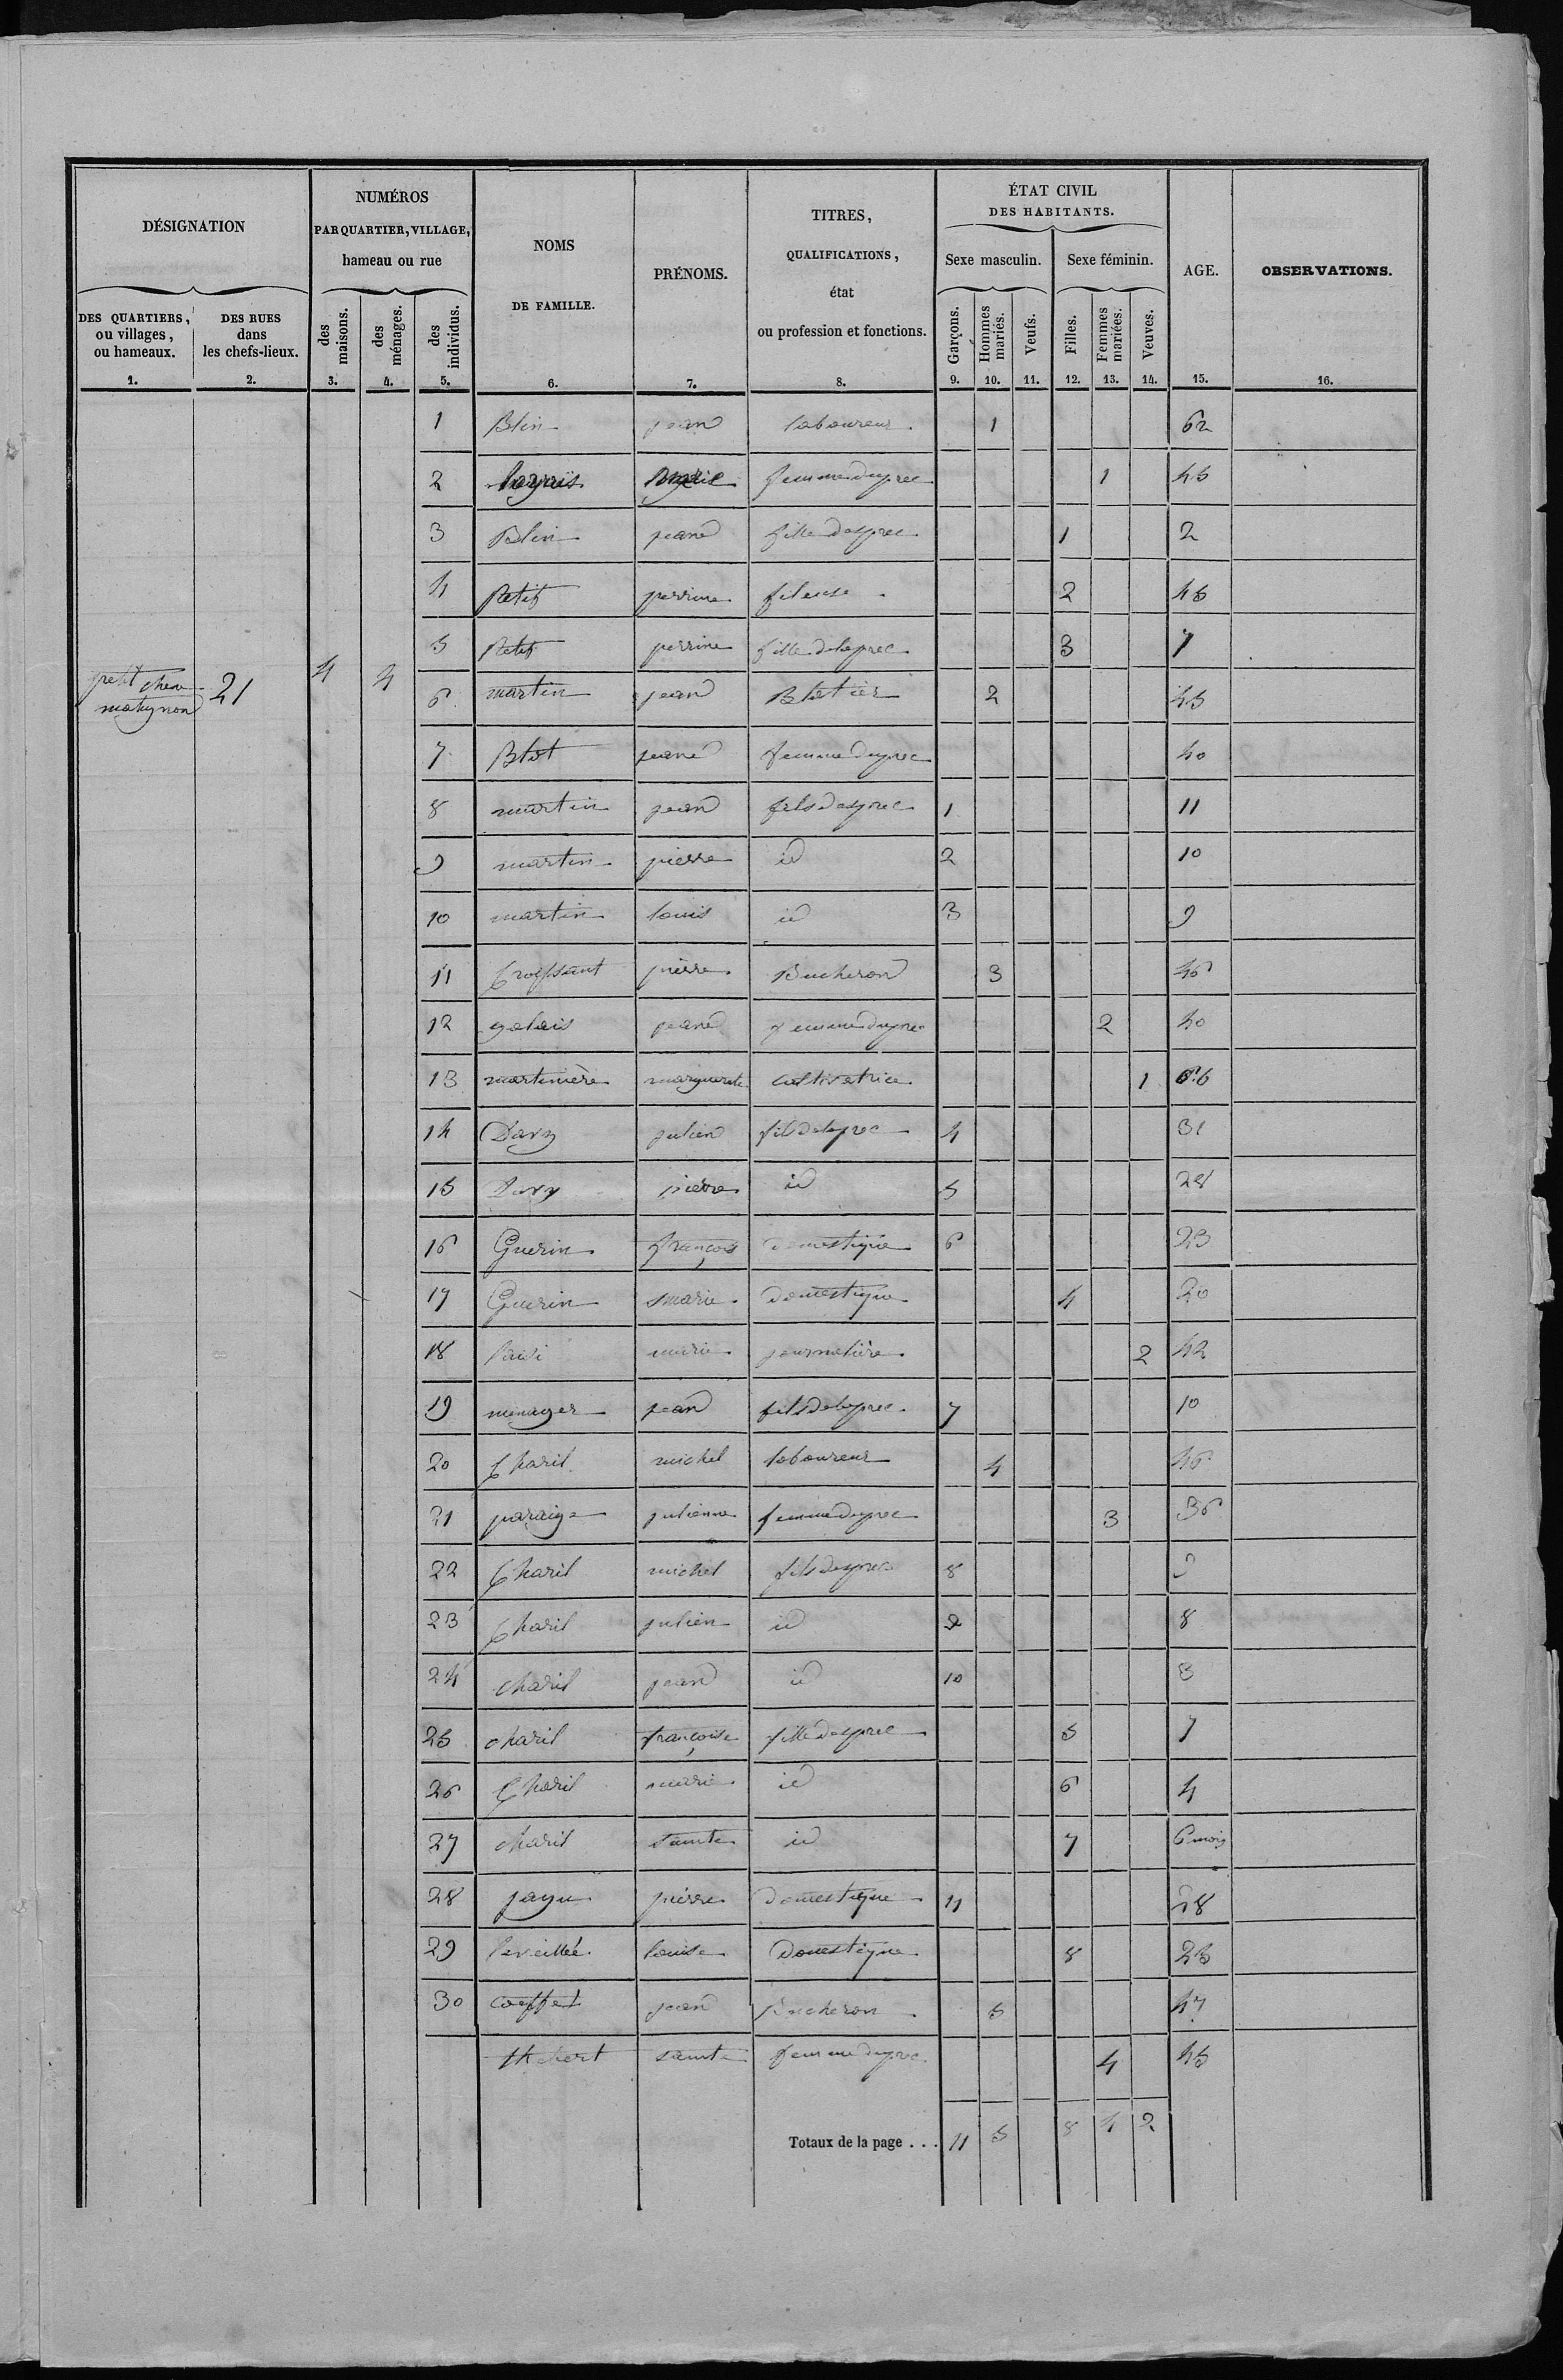 DÉSIGNATION
NUMÉROS
PAR QUARTIER, VILLAGE,
hameau ou rue
NOMS
DE FAMILLE.
PRÉNOMS.
TITRES,
QUALIFICATIONS,
état
ou profession et fonctions.
ÉTAT CIVIL
DES HABITANTS.
Sexe masculin. Sexe féminin.
AGE.
OBSERVATIONS.
DES QUARTIERS,
ou villages,
ou hameaux.
DES RUES
dans
les chefs-lieux.
des maisons.
des ménages.
des individus.
Garçons.
Hommes mariés.
Veufs.
Filles.
Femmes mariées.
Veuves.
1. 2. 3. 4. 5. 6. 7. 8. 9. 10. 11. 12. 13. 14. 15. 16.
petit chene
matignon 21 4 4
1 Blin jean laboureur 1 62
2 Marie femme du prec 1 45
3 Blin jeane fille des prec 1 2
4 Petit perrine fileuse 2 46
5 Petit perrine fille de la prec 3 7
6 martin jean Blatier 2 45
7 Blot jeane femme du prec 40
8 martin jean fils des prec 1 11
9 martin pierre id 2 10
10 martin louis id 3 9
11 Croissant pierre Bucheron 3 46
12 galais jeane femme du prec 2 40
13 martinière marguerite cultivatrice 1 66
14 Davy julien fils de la prec 4 31
15 Davy pierre id 5 28
16 Guerin françois domestique 6 23
17 Guerin marie domestique 4 20
18 marie journalière 2 42
19 menager jean fils de la prec 7 10
20 Charil michel laboureur 4 46
21 paraige julienne femme du prec 3 36
22 Charil michel fils des prec 8 9
23 Charil julien id 9 8
24 charil jean id 10 3
25 charil françoise fille des prec 5 7
26 Charil marie id 6 4
27 charil sainte id 7 6 mois
28 pierre domestique 11 18
29 leveillée louise Domestique 8 25
30 coeffet jean bucheron 5 47
sainte femme du prec 4 45
Totaux de la page . . . 11 5 8 4 2